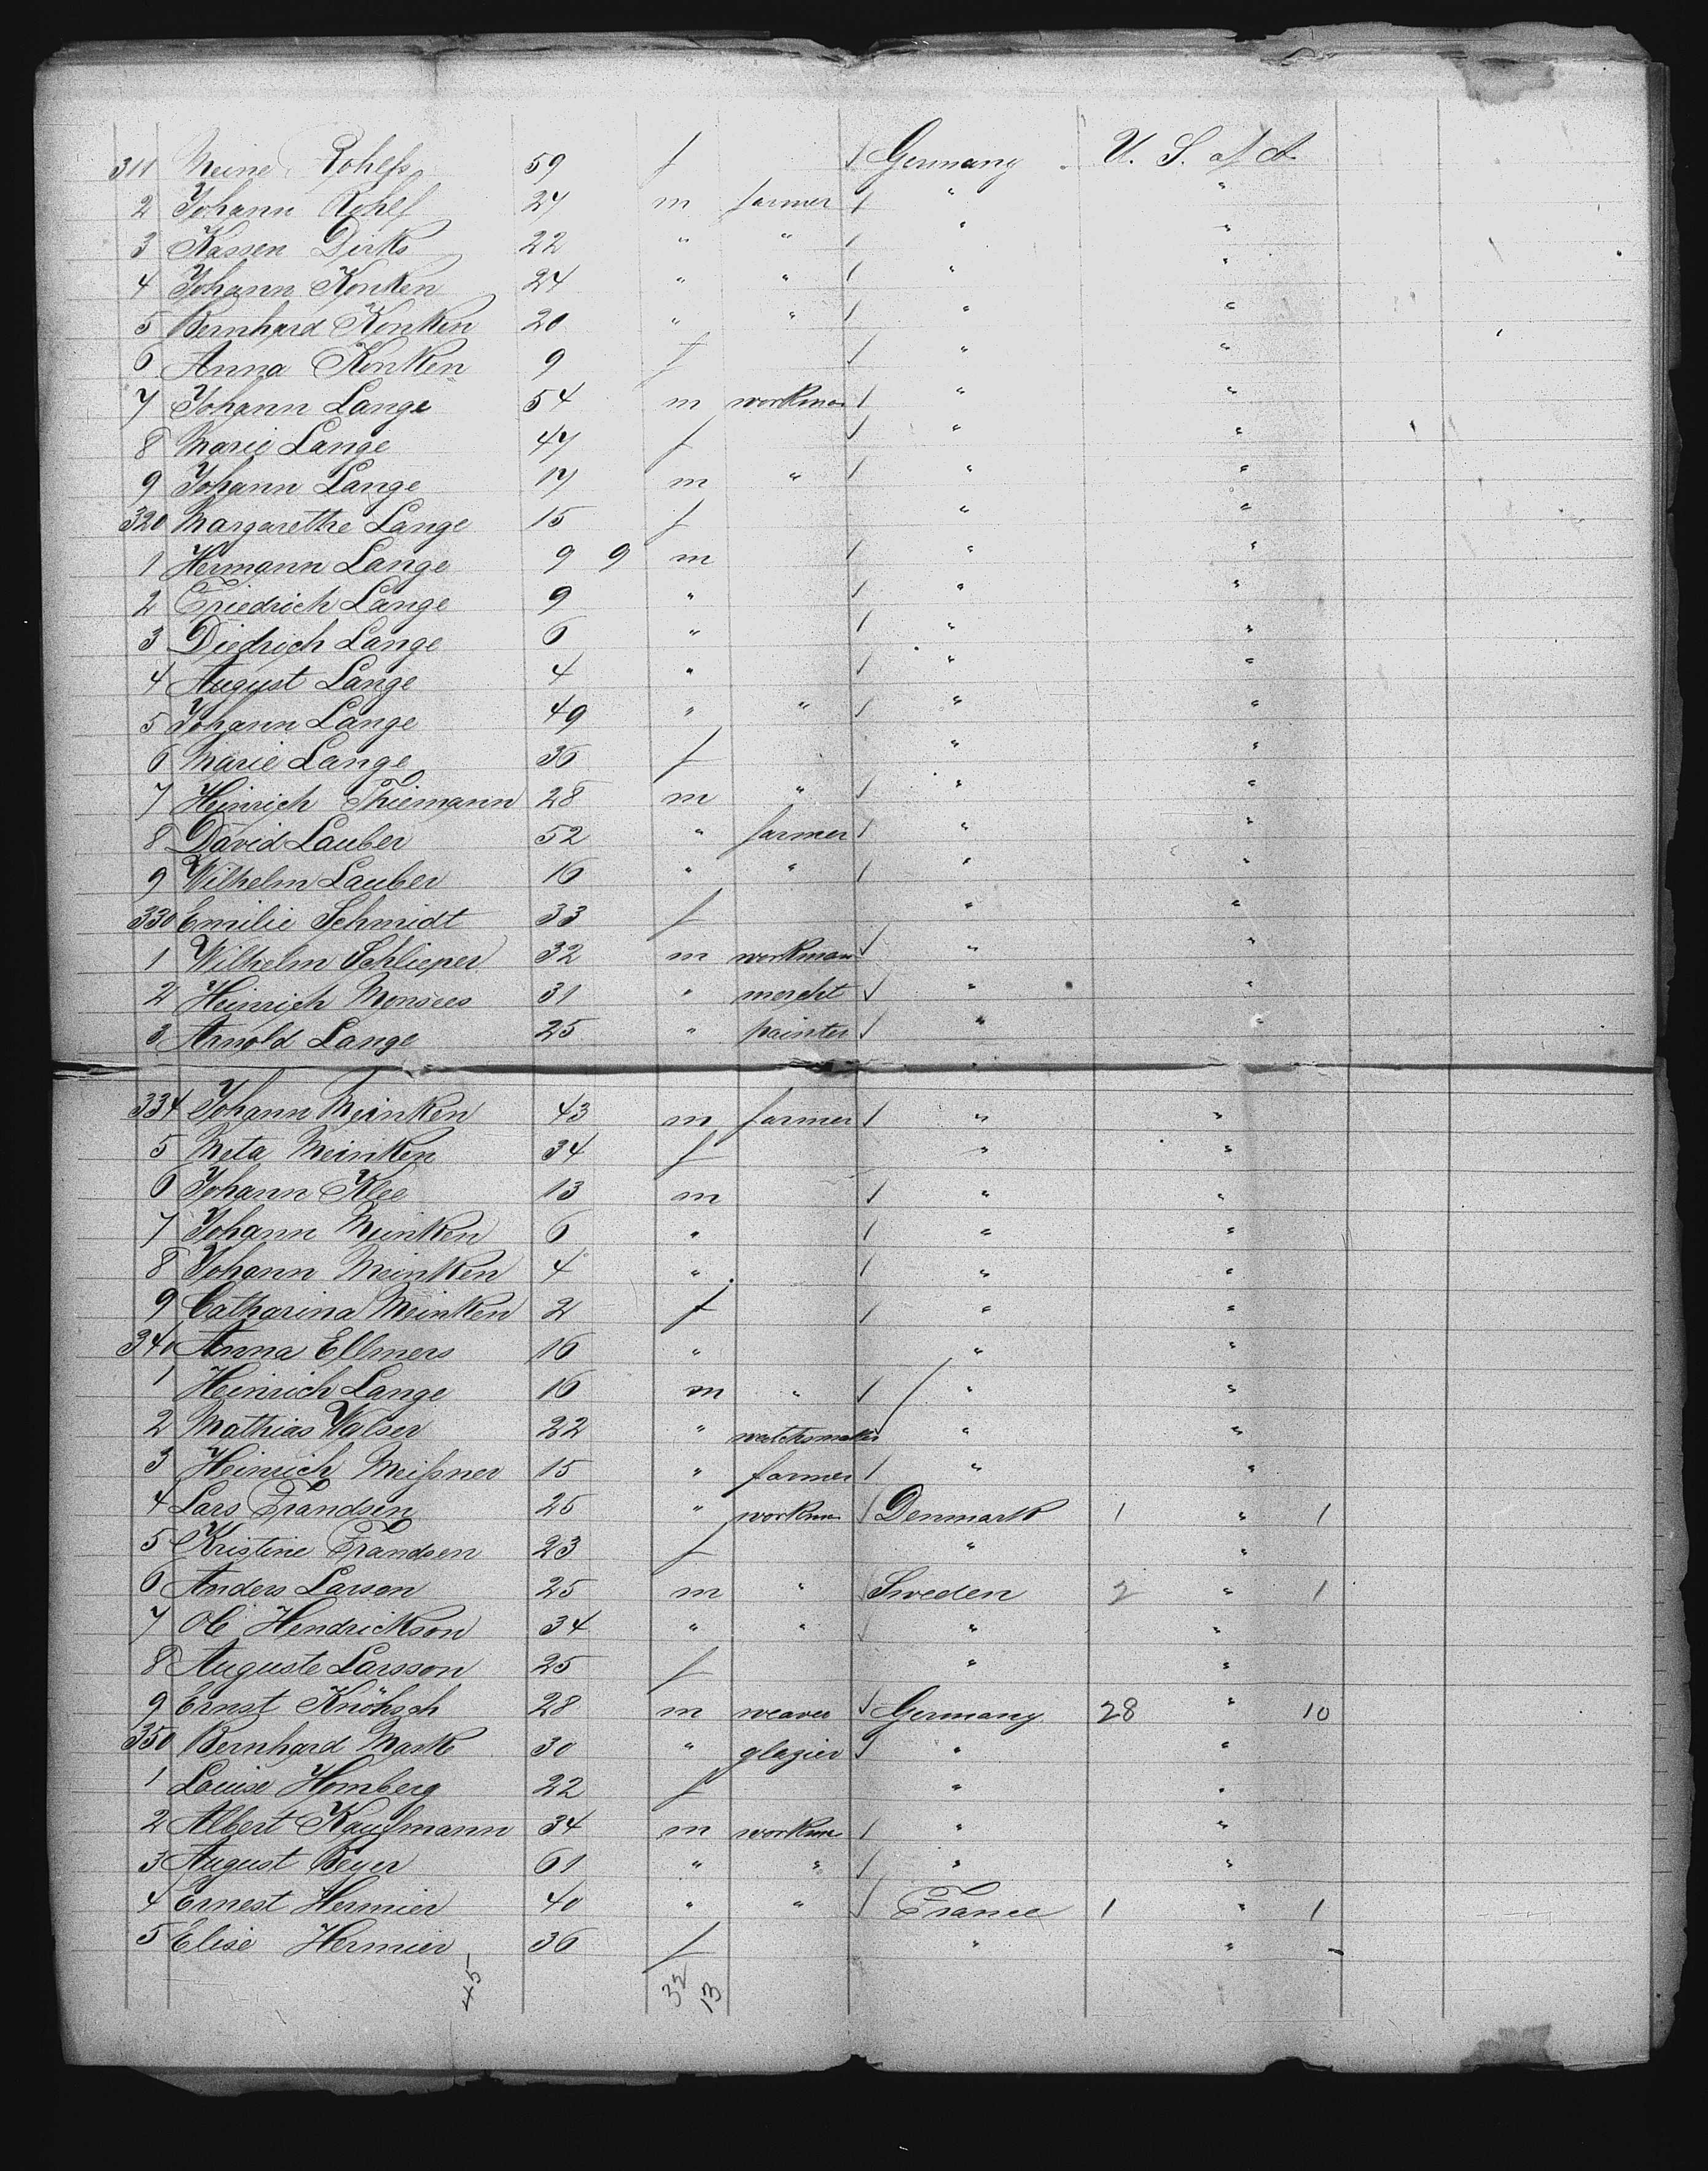 311 Meine Rohlfs 59 f Germany U. S. of A.
2 Johann Rohlf 24 m farmer " "
3 Kassen Dirks 22 " " " "
4 Johann Konken 24 " " " "
5 Bernhard Konken 20 " " " "
6 Anna Konken 9 f " "
7 Johann Lange 54 m workman " "
8 Marie Lange 47 f " "
9 Johann Lange 17 m " " "
320 Margarethe Lange 15 f " "
1 Hermann Lange 9 9 m " "
2 Friedrich Lange 9 " " "
3 Diedrich Lange 6 " " "
4 August Lange 4 " " "
5 Johann Lange 49 " " " "
6 Marie Lange 36 f " "
7 Heinrich Thiemann 28 m " " "
8 David Lauber 52 " farmer " "
9 Wilhelm Lauber 16 " " " "
330 Emilie Schmidt 33 f " "
1 Wilhelm Schlieper 32 m workman " "
2 Heinrich Monsees 31 " mercht " "
3 Arnold Lange 25 " painter " "
334 Johann Meinken 43 m farmer " "
5 Meta Meinken 34 f " "
6 Johann Klee 13 m " "
7 Johann Meinken 6 " " "
8 Johann Meinken 4 " " "
9 Catharina Meinken 2 f " "
340 Anna Ellmers 16 " " "
1 Heinrich Lange 16 m " " "
2 Mathias Walser 22 " watchmaker " "
3 Heinrich Meißner 15 " farmer " "
4 Lars Frandsen 25 " workm Denmark 1 " 1
5 Kristine Frandsen 23 f " "
6 Anders Larson 25 m " Sweden 2 " 1
7 Ole Hendrickson 34 " " " "
8 Auguste Larsson 25 f " "
9 Ernst Knöhsch 28 m weaver Germany 28 " 10
350 Bernhard Mark 30 " glazier " "
1 Louise Homberg 22 f " "
2 Albert Kaufmann 34 m workm " "
3 August Beyer 61 " " " "
4 Ernest Hermier 40 " " France 1 " 1
5 Elise Hermier 36 f " "
45 32 13